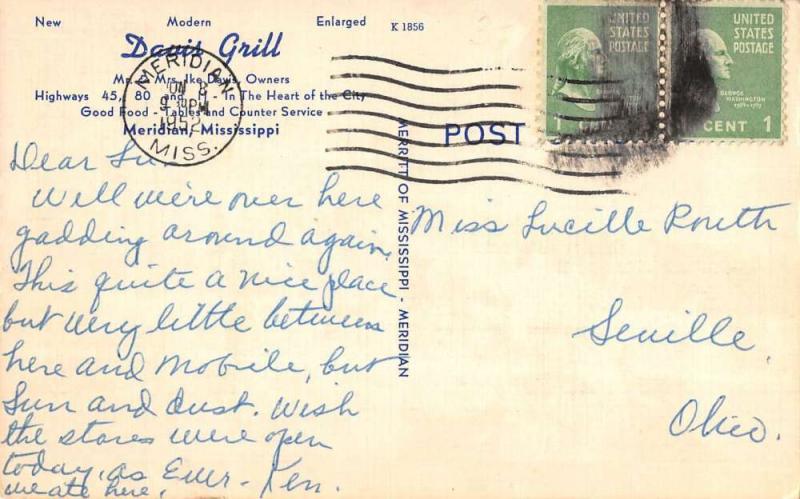 New Modern Enlarged K 1856
Davis Grill
Mr. & Mrs. Ike Davis, Owners
Highways 45, 80 and 11 - In The Heart of the City
Good Food - Tables and Counter Service
Meridian, Mississippi
MERIDIAN
9 PM
MISS.
UNITED STATES POSTAGE
1
UNITED STATES POSTAGE
GEORGE WASHINGTON
CENT 1
POST
MERRITT OF MISSISSIPPI - MERIDIAN
Dear Lu.
Well we're over here
gadding around again.
This quite a nice place
but very little between
here and Mobile, but
Sun and dust. Wish
the stores were open
today, as Ever - Ken.
we ate here.
Miss Lucille Routh
Seville,
Ohio.